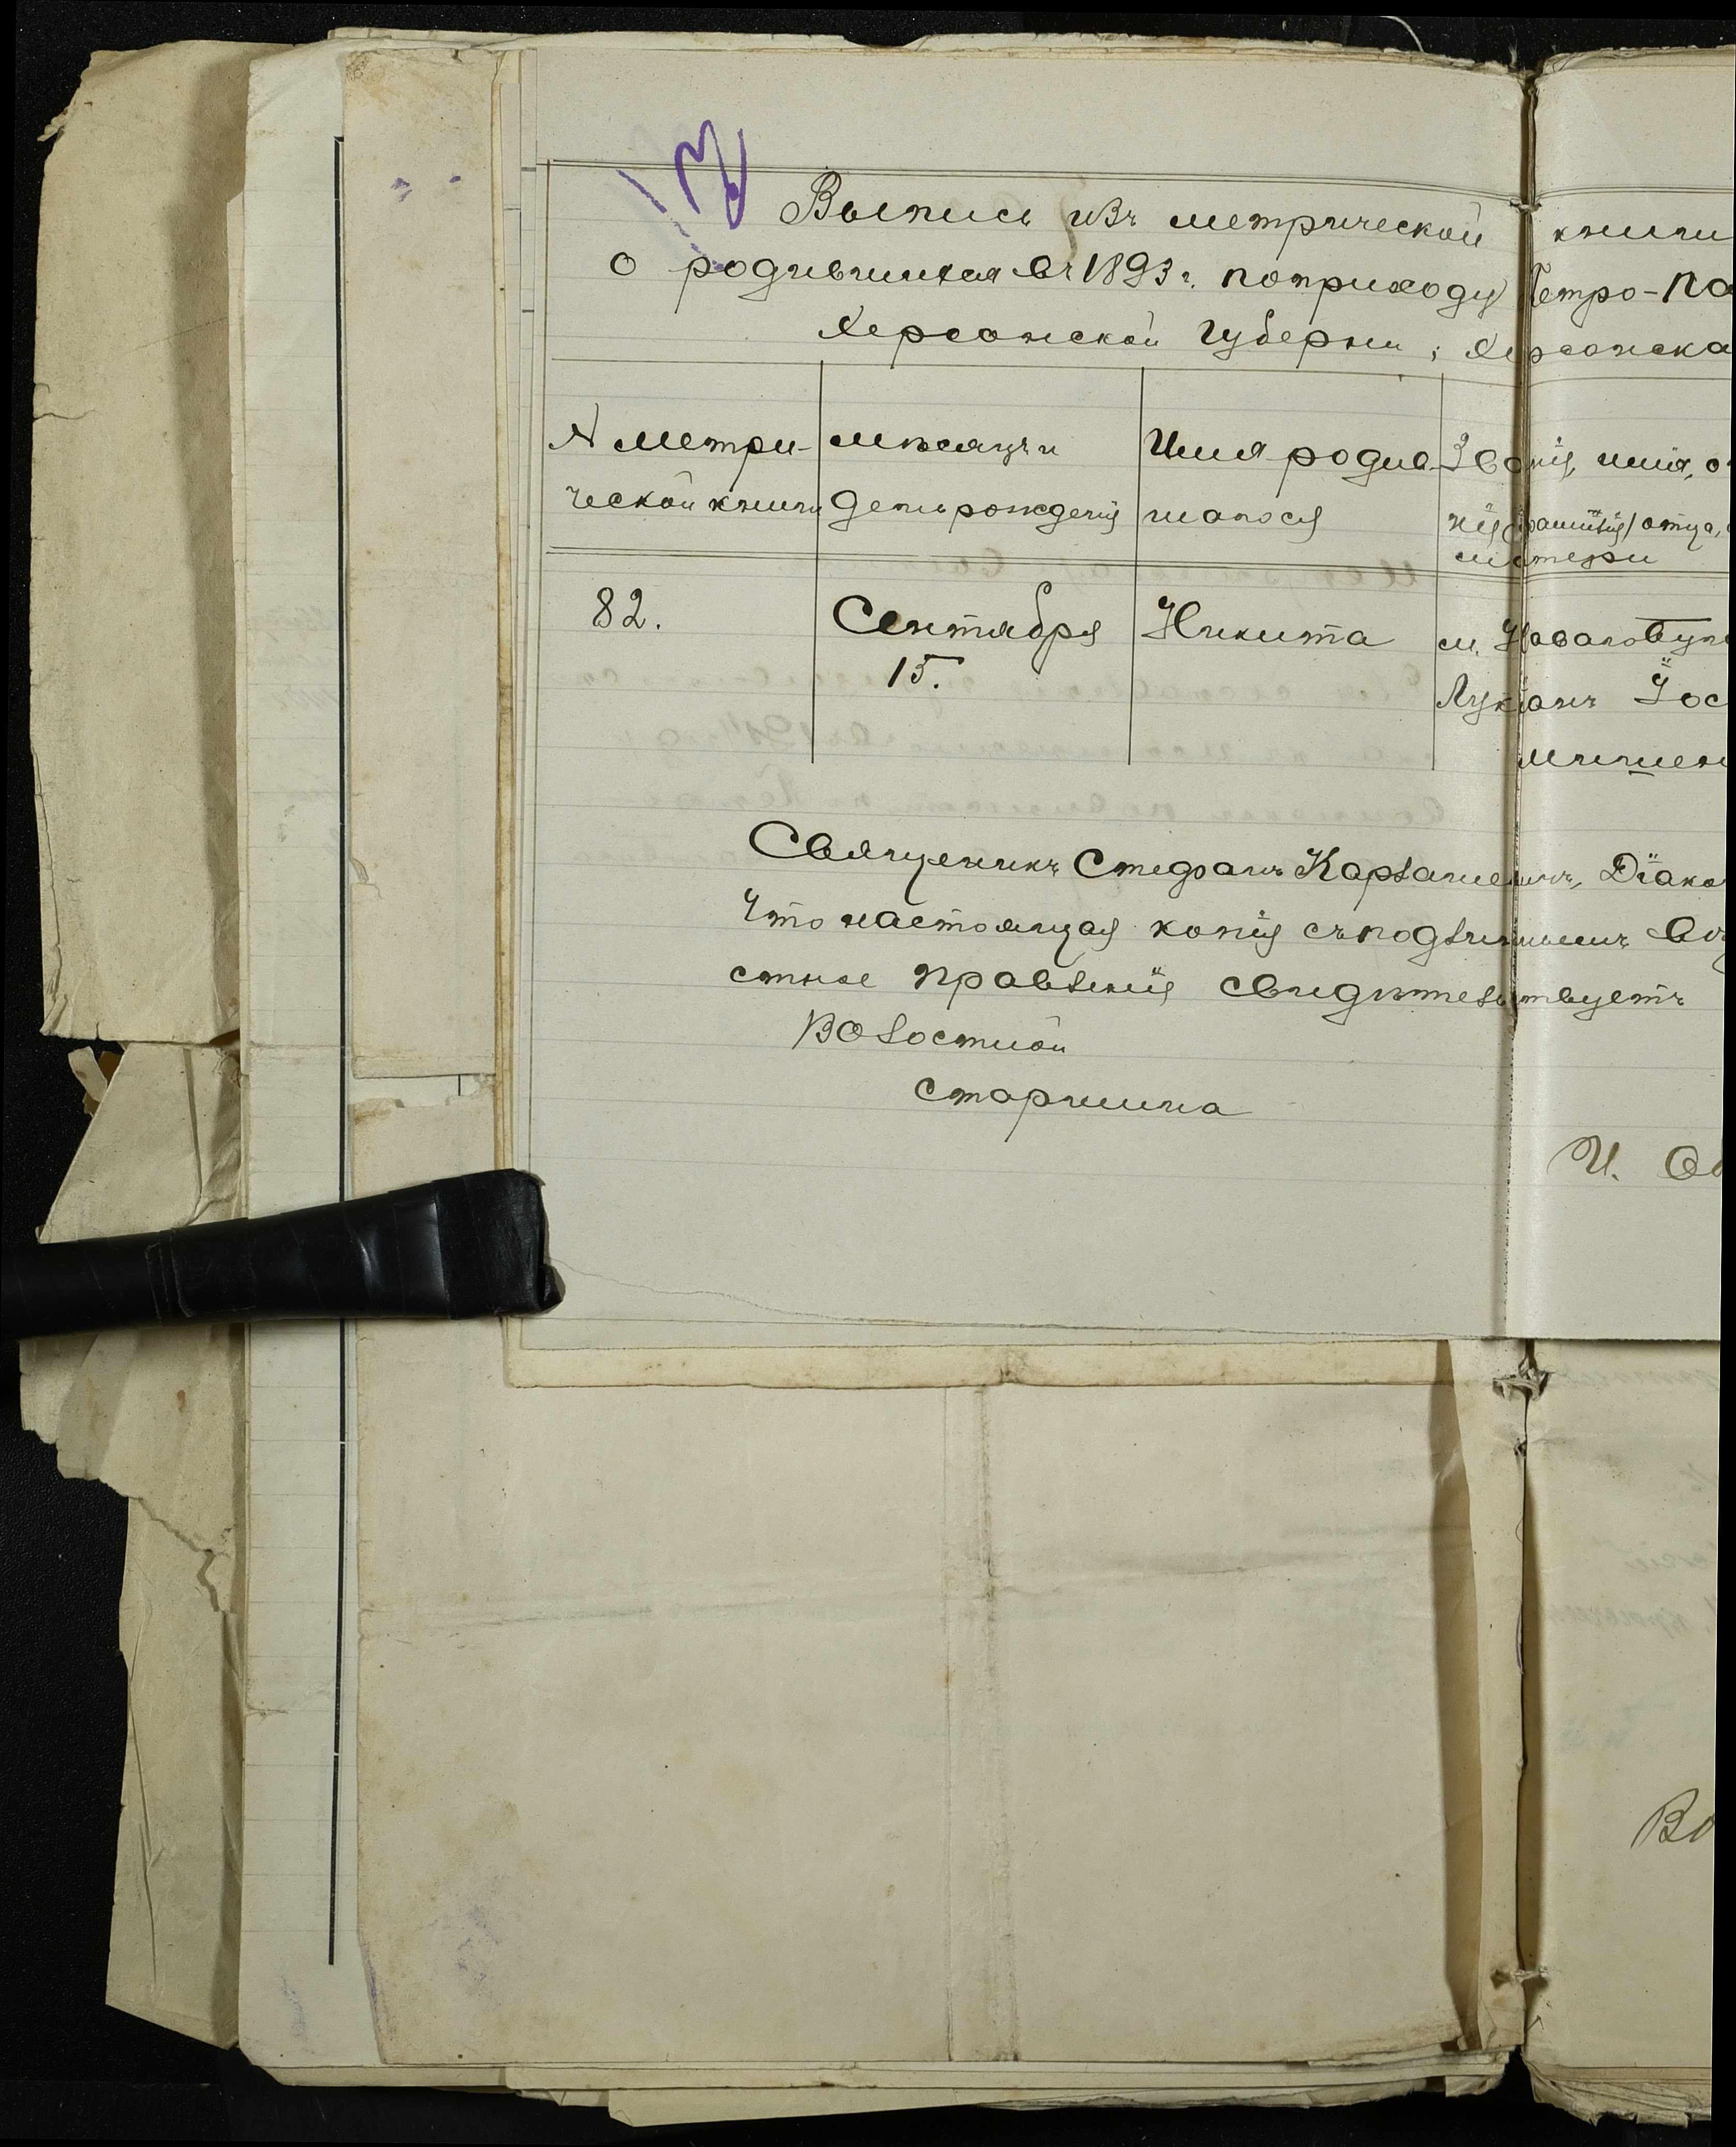 Выпись изъ метрической книги
о родившихся въ 1893 г. по приходу Петро-Па
Херсонской Губерніи, Херсонска
№ метри- ческой книги
мѣсяцъ и день рожденія
Имя родив- шагося
Званіе, имя, о
нія (фамилія) отца,
матери
82.
Сентября
15.
Никита
м.
Лукіанъ Іос
Священникъ Стефанъ Діако
Что настоящая копія съ подлиннымъ
стное правленіе свидѣтельствуетъ
Волостной
старшина
И.
Во